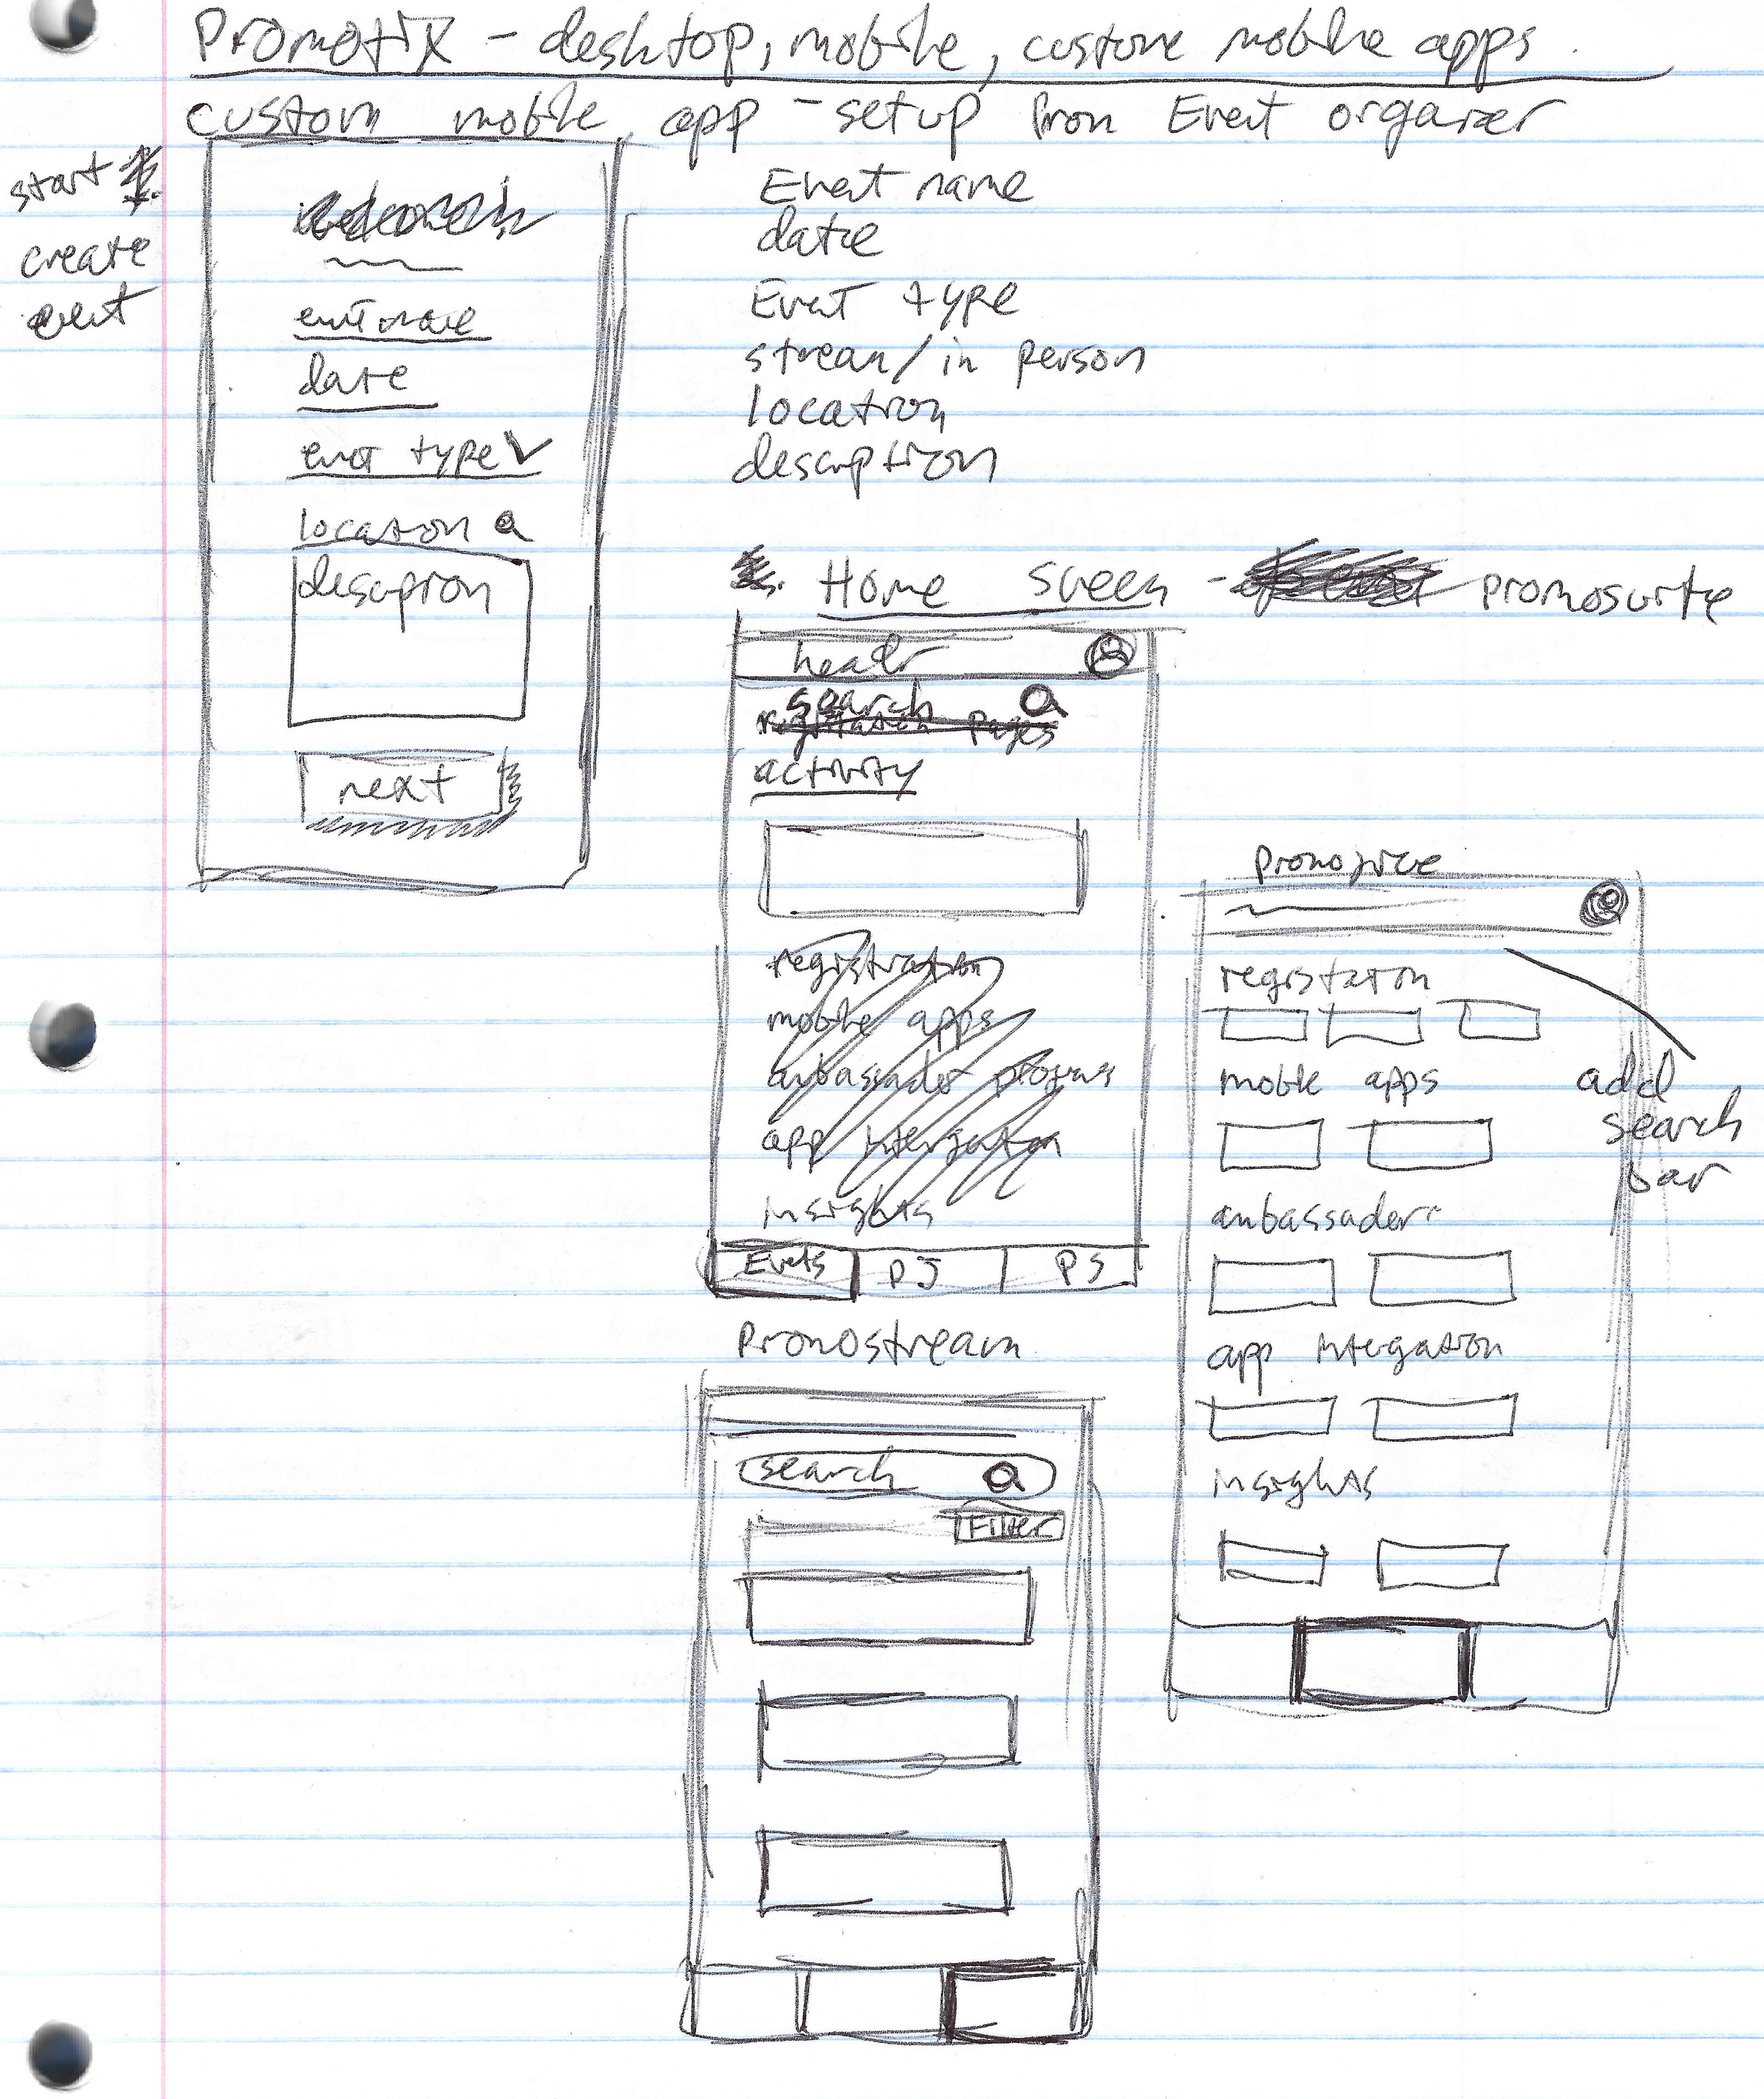 Promotix - desktop, mobile, custom mobile apps.
custom mobile app - setup from Event organizer
start
create
event
event name
date
event type
location
description
next
Event name
date
Event type
stream / in person
location
description
Home screen - promosuite
header
search
registration pages
activity
registration
mobile apps
ambassador programs
app intergration
insights
Events PJ PS
promojive
registation
mobile apps
add
search
bar
ambassaders
app intergation
insights
Promostream
search
Filter